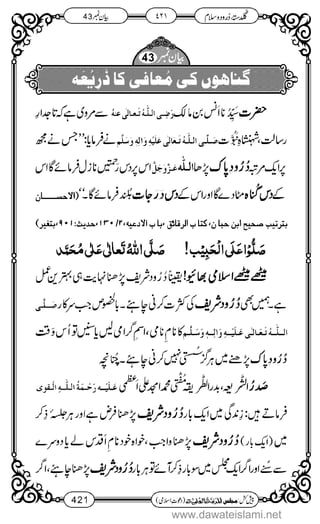 گلدستہ دُرُود و سلام ٤٢١ بیان نمبر 43
بیان نمبر 43
گناہوں کی مُعافی کا ذَرِیْعہ
حضرتِ سَیِّدُنا انس بن مالک رَضِیَ اللّٰہُ تَعَالٰی عَنْہُ سے مروی ہے کہ تاجدارِ
رسالت، شہنشاہِ نَبُوَّت صَلَّی اللّٰہُ تَعَالٰی عَلَیْہِ وَاٰلِہٖ وَسَلَّم نے فرمایا: ”جس نے مجھ
پر ایک مرتبہ دُرُودِ پاک پڑھا اللّٰہ عَزَّوَجَلَّ اس پر دس رَحمتیں نازِل فرمائے گا اس
کے دس گُناہ مِٹا دے گا اور اس کے دس دَرَجات بُلند فرمائے گا۔“ (الاحســـان
بترتیب صحیح ابن حبان، کتاب الرقائق، باب الادعیہ، ۲/۱۳۰، حدیث: ۹۰۱، بتغیر)
صَلُّوْا عَلَی الْحَبِیْب! صَلَّی اللّٰہُ تَعَالٰی عَلٰی مُحَمَّد
میٹھے میٹھے اسلامی بھائیو! یقیناً دُرُود شریف پڑھنا نہایت ہی بہترین عمل
ہے۔ ہمیں بھی دُرُودِ شریف کی کثرت کرنی چاہئے۔ بالخصوص جب سرکار صَلَّی
اللّٰہُ تَعَالٰی عَلَیْہِ وَاٰلِہٖ وَسَلَّم کا نامِ نامی، اسمِ گرامی لیں یا سُنیں تو اُس وَقت
دُرُودِ پاک پڑھنے میں ہرگز سُستی نہیں کرنی چاہئے۔ چُنانچہ
صَدرُ الشَّریعہ، بدرُ الطَّریقہ مُفتی محمد امجد علی اعظمی عَلَیْہِ رَحْمَۃُ اللّٰہِ الْقَوِی
فرماتے ہیں: زِندگی میں ایک بار دُرُودِ شریف پڑھنا فرض ہے اور ہر جلسۂ ذِکر
میں (ایک بار) دُرُودِ شریف پڑھنا واجب، خواہ خود نامِ اَقدس لے یا دوسرے
سے سُنے اور اگر ایک مجلس میں سو بار ذِکر آئے تو ہر بار دُرُود شریف پڑھنا چاہئے، اگر
421 پیش کش: مجلس اَلْمَدِیْنَۃُ الْعِلْمِیَّۃ (دعوتِ اسلامی)
www.dawateislami.net